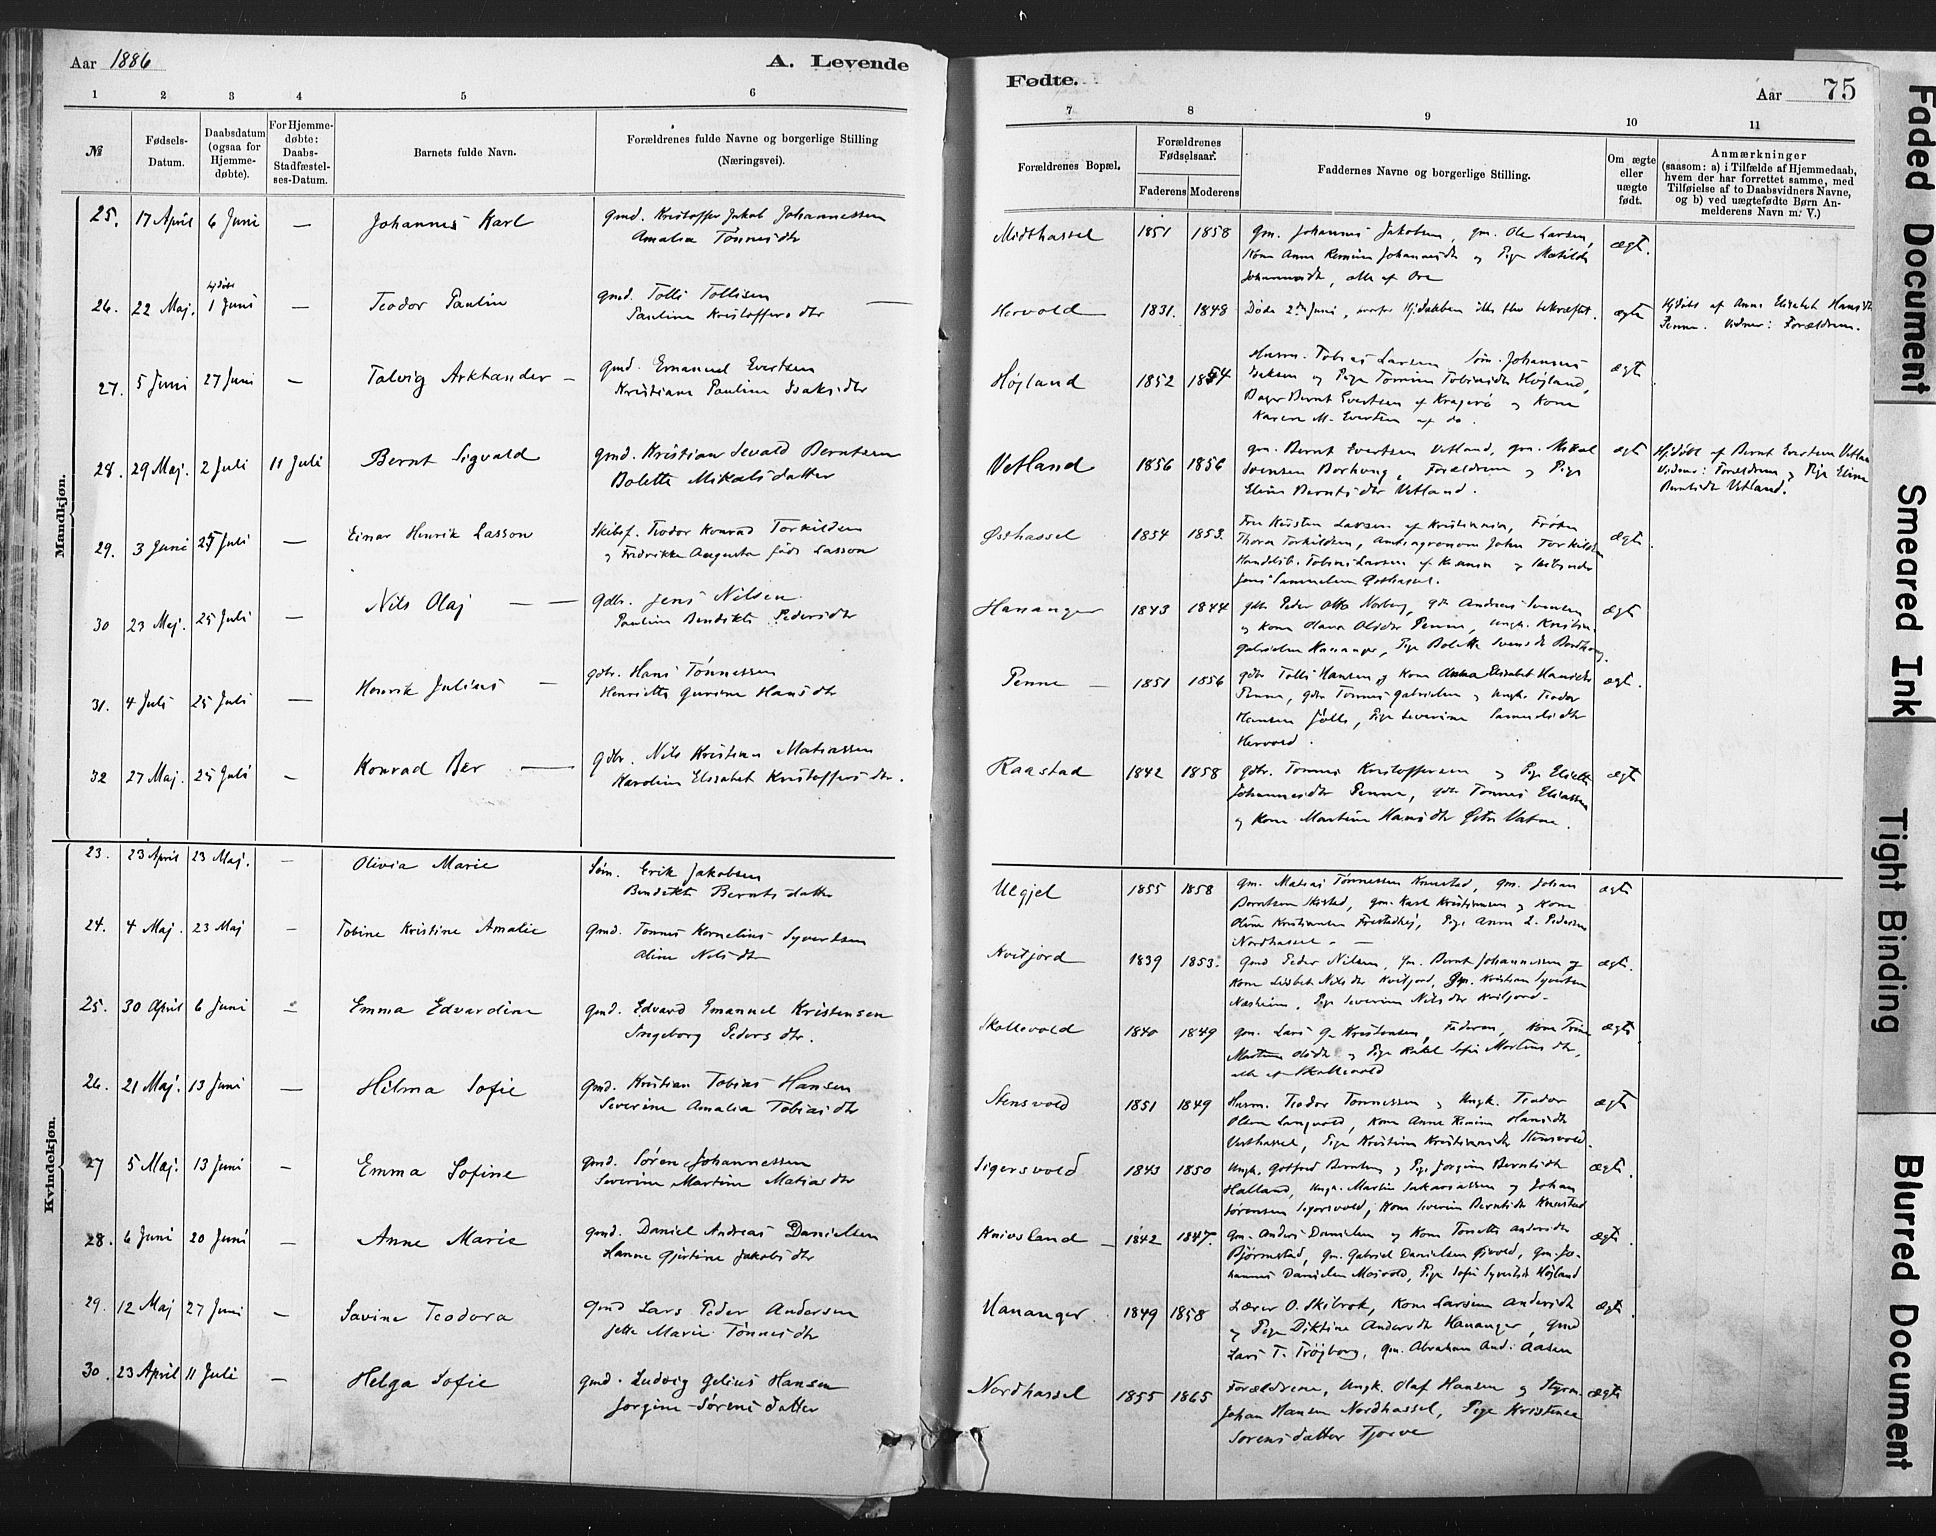 Aar 1886
A. Levende
1 2 3 4 5 6
№
Fødsels-Datum.
Daabsdatum (ogsaa for Hjemmedøbte).
For Hjemmedøbte: Daabs-Stadfæstelses-Datum.
Barnets fulde Navn.
Forældrenes fulde Navne og borgerlige Stilling
(Næringsvei).
Mandkjøn.
25. 17 April 6 Juni — Johannes Karl gmd. Kristoffer Jakob Johannessen
Amalia Tønnesdtr
26. 22 Maj. 1 Juni — Teodor Paulin gmd. Tolli Tollisen
Pauline Kristoffersdtr
27. 5 Juni 27 Juni — Talvig Arktander — gmd. Emanuel Evertsen
Kristiane Pauline Isaksdtr
28. 29 Maj. 2 Juli 11 Juli Bernt Sigvald gmd. Kristian Sevald Berntsen
Bolette Mikalsdatter
29. 3 Juni 25 Juli — Einar Henrik Lasson Skibsf. Teodor Konrad Torkildsen
og Fredrikke Augusta født Lasson
30 23 Maj. 25 Juli — Nils Olaj — gdbr. Jens Nilsen
Pauline Bendikte Pedersdtr
31. 4 Juli 25 Juli — Henrik Julius — gdbr. Hans Tønnessen
Henriette Gurine Hansdtr
32 27 Maj. 25 Juli — Konrad Ber — gdbr. Nils Kristian Matiassen
Karoline Elisabet Kristoffersdtr.
Kvindekjøn.
23. 23 April 23 Maj. — Olivia Marie Søm. Erik Jakobsen
Bendikte Berntsdatter
24. 4 Maj. 23 Maj — Tobine Kristine Amalie gmd. Tønnes Kornelius Syvertsen
Aline Nilsdtr
25. 30 April 6 Juni — Emma Edvardine gmd. Edvard Emanuel Kristensen
Ingeborg Pedersdtr.
26. 21 Maj. 13 Juni — Hilma Sofie gmd. Kristian Tobias Hansen
Severine Amalia Tobiasdtr
27 5 Maj. 13 Juni — Emma Sofine gmd. Søren Johannessen
Severine Martine Matiasdtr
28. 6 Juni 20 Juni — Anne Marie gmd. Daniel Andreas Danielsen
Hanne Gjertine Jakobsdtr
29. 12 Maj 27 Juni — Savine Teodora gmd Lars Peder Andersen
Jette Marie Tønnesdtr
30. 23 April 11 Juli — Helga Sofie gmd. Ludvig Gelius Hansen
Jørgine Sørensdatter
Fødte.
Aar 75
7 8 9 10 11
Forældrenes Bopæl.
Forældrenes Fødselsaar.
Faderens Moderens
Faddernes Navne og borgerlige Stilling.
Om ægte eller uægte født.
Anmærkninger
(saasom: a) i Tilfælde af Hjemmedaab,
hvem der har forrettet samme, med
Tilføielse af to Daabsvidners Navne,
og b) ved uægtefødte Børn Anmelderens Navn m. V.)
Midthassel 1851 1858 gm. Johannes Jakobsen, gm. Ole Larsen, ægt.
Kone Anne Johannesdtr og Pige Matilde
Johannesdtr, alle af Ore
Hervold 1831. 1848 Døde 2den Juni, hvorfor Hj.daaben ikke blev bekræftet. ægte Hj.døbt af Anne Elisabet Hansdtr
Penne. Vidner: Forældrene.
Højland 1852 1854 Husm. Tobias Larsen Søm. Johannes ægte
Isaksen og Pige Tomine Tobiasdtr Højland,
Bager Bernt Evertsen af Kragerø og Kone
Karen M. Evertsen af do.
Vetland 1856 1856 gm. Bernt Evertsen Vetland, gm. Mikal ægt Hj.døbt af Bernt Evertsen Vetland
Svensen Borhaug, Forældrene og Pige Vidner: Forældrene og Pige Eline
Eline Berntsdtr Vetland. Berntsdtr Vetland.
Østhassel 1854 1853. Fru Kirsten Larsen af Kristiania, Frøken ægte.
Thora Torkildsen, Amtsagronom John Torkildsen
Handelsb. Tobias Larsen af og
Jens Samuelsen Østhassel.
Hananger 1843 1844 gdb. Peder Otto Norberg, gdb. Andreas Svensen ægt
og Kone Olava Olsdtr Penne, Ungk. Kristian
Gabrielsen Hananger, Pige Bolette Svensdtr Borhaug.
Penne — 1851 1856 gdbr Tolli Hansen og Kone Anna Elisabet Hansdtr ægt.
Penne, gdbr Tønnes Gabrielsen og Ungk. Teodor
Hansen Jølle, Pige Severine Samuelsdtr
Hervold.
Raastad 1842 1858 gdbr. Tønnes Kristoffersen og Pige Elisette ægt
Johannesdtr Penne, gdbr Tønnes Eliassen
og Kone Martine Hansdtr Østre Vatne.
Ulgjel 1855 1858 gm. Matias Tønnessen Knivstad, gm. Johan ægte
Berntsen Skistad, gm. Karl Kristiansen og Kone
Oline Kristiansen Frestadhej, Pige Anne L. Pedersen
Nordhassel. —
Kvitjord 1839 1853. Gmd Peder Nilsen, gm. Bernt Johannessen og ægt.
Kone Lisbet Nilsdtr Kvitjord, gm. Kristian Syvertsen
Næsheim, Pige Severine Nilsdtr Kvitjord.
Skollevold 1840 1849 gm. Lars G. Kristensen, Faderen, Kone Trine ægte
Martine Olsdtr og Pige Rakel Sofie Mortensdtr,
alle af Skollevold
Stensvold 1851 1849 Husm. Teodor Tønnessen og Ungk. Teodor ægt
Olsen Langvold, Kone Anne Hansdtr
Vesthassel, Pige Kristine Kristiansdtr Stensvold.
Sigersvold 1843 1850 Ungk. Gotfred Berntsen og Pige Jørgine Berntsdtr ægt.
Halland, Ungk. Martin Sakariassen og Johan
Sørensen Sigersvold, Kone Severine Berntsdtr Knivstad
Knivsland — 1842 1847. Gm. Anders Danielsen og Kone Tonette Andersdtr ægt.
Bjørnestad, Gm. Gabriel Danielsen Øjvold, Gm. Jo-
hannes Danielsen Mosvold, Pige Sofie Syvertsdtr Højland
Hananger. 1849 1858 Lærer O. Skibrok, Kone Larsine Andersdtr ægt.
og Pige Diktine Andersdtr Hananger, gmd
Lars T. Trøjborg, gm. Abraham And: Aasen
Nordhassel 1855 1865 Forældrene, Ungk. Olaf Hansen og Styrm. ægt
Johan Hansen Nordhassel, Pige Kristense
Sørensdatter Tjørve
Faded Document
Smeared Ink
Tight Binding
Blurred Document